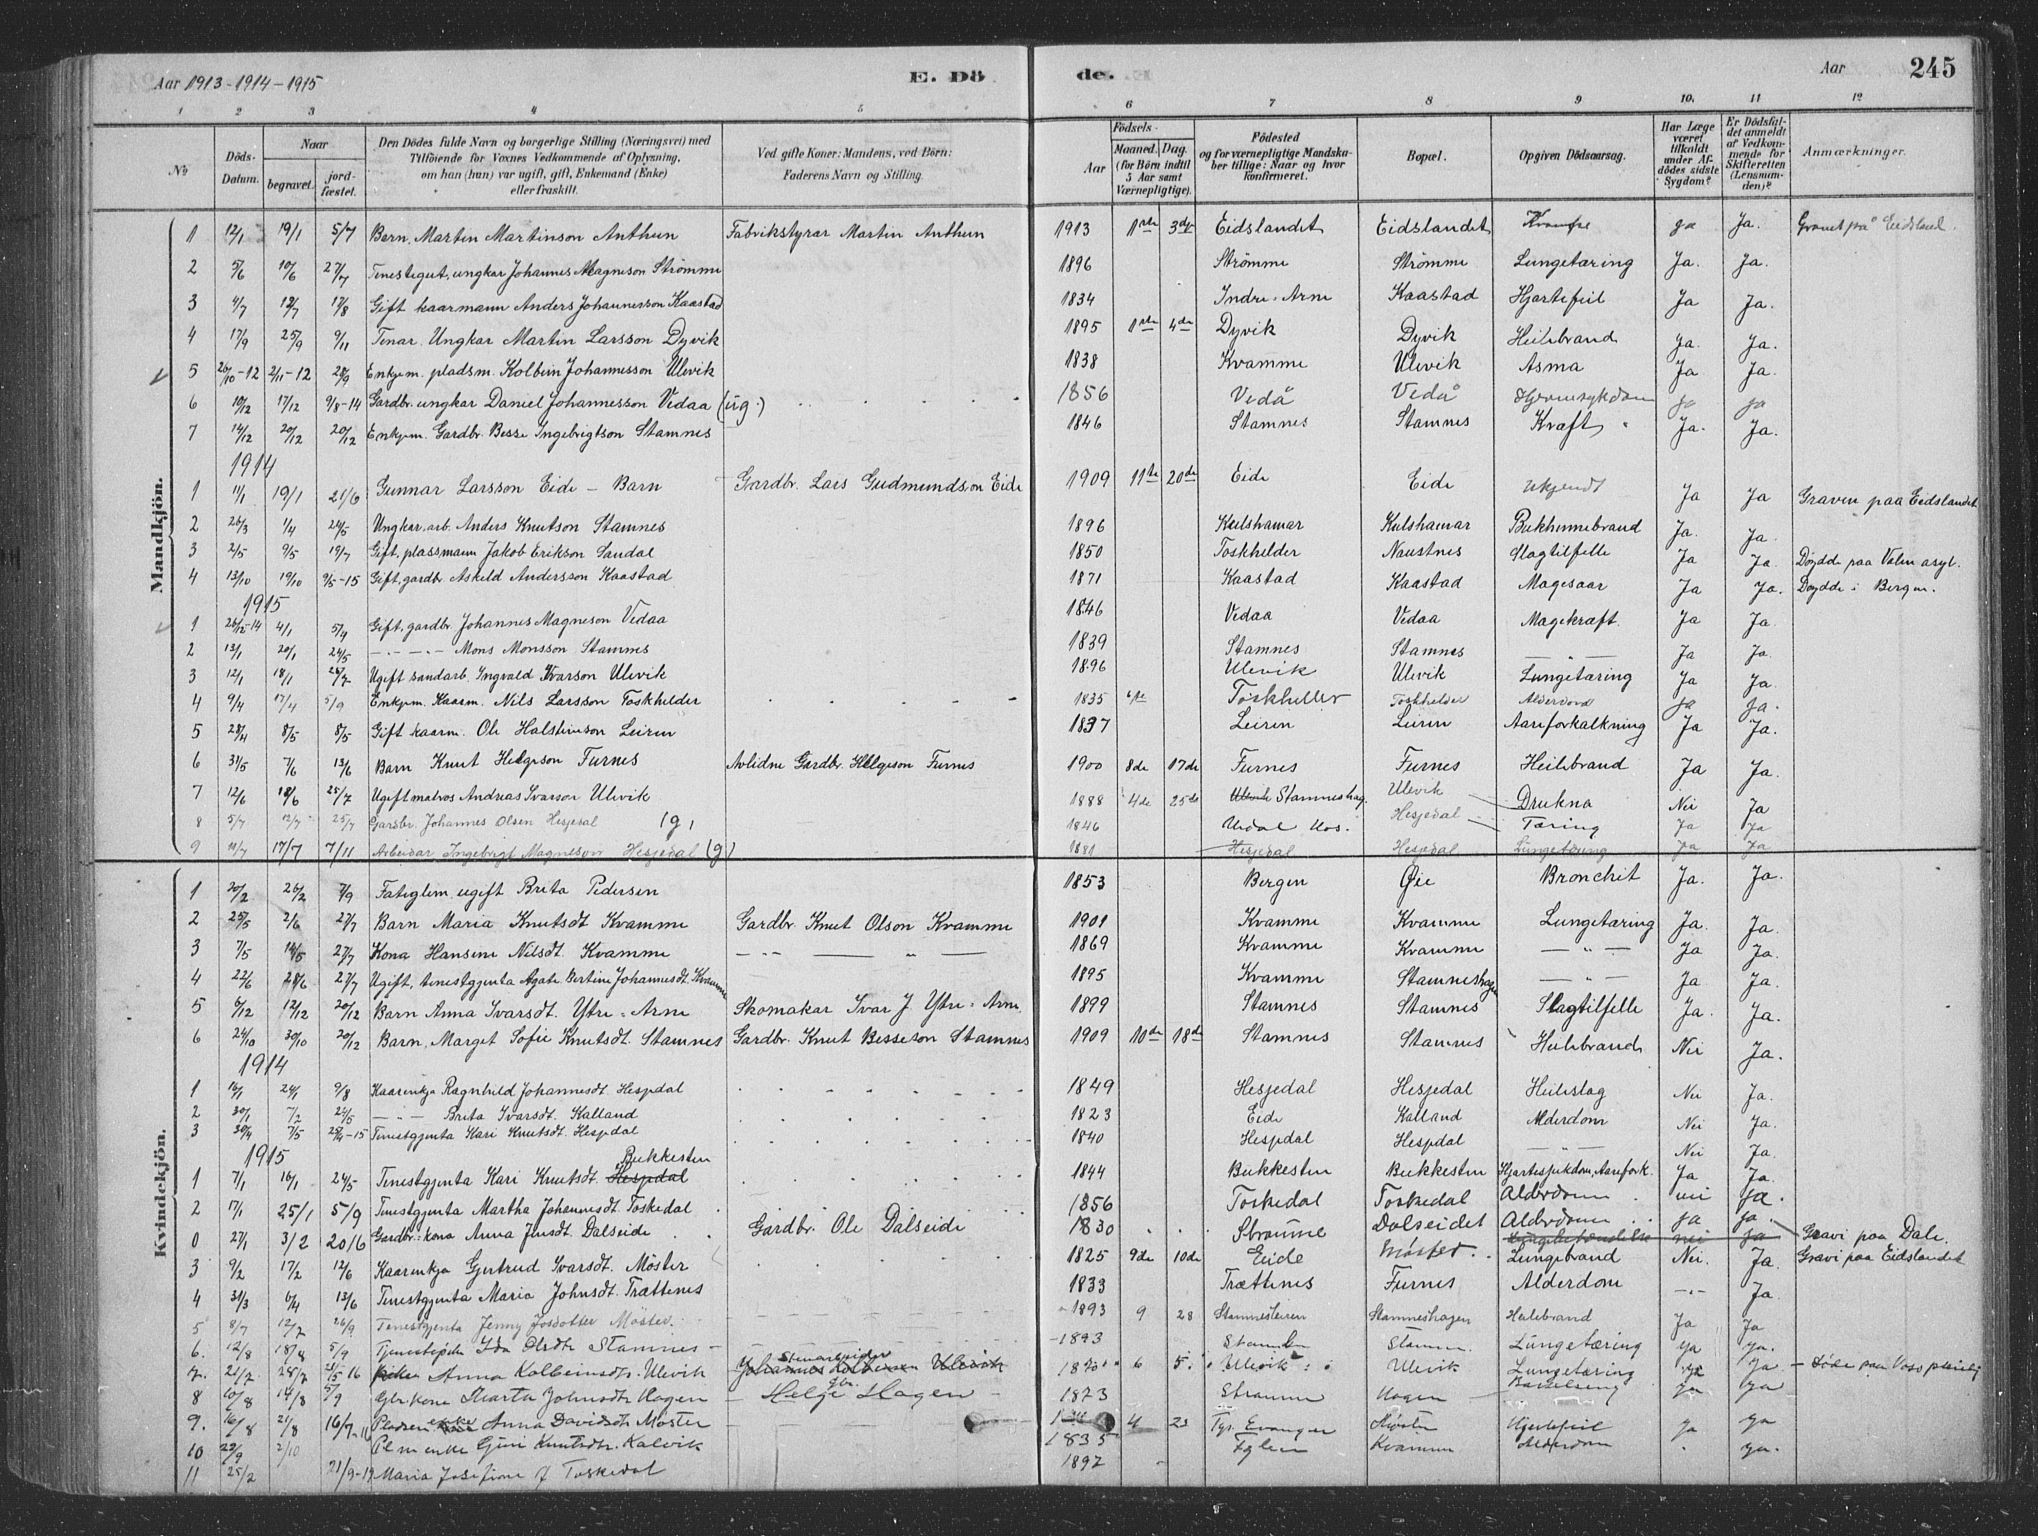 Aar 1913-1914-1915 E. Dö de. Aar 245
1 2 3 4 5 6 7 8 9 10. 11 12
No Döds-Datum. Naar begravet. jordfæstet. Den Dödes fulde Navn og borgerlige Stilling (Næringsvei) med Tilföiende for Voxnes Vedkommende af Oplysning, om han (hun) var ugift, gift, Enkemand (Enke) eller fraskilt. Ved gifte Koner: Mandens, ved Börn: Faderens Navn og Stilling. Födsels- Aar Maaned. Dag. (for Börn indtil 5 Aar samt Værnepligtige). Födested og for værnepligtige Mandskaber tillige: Naar og hvor konfirmeret. Bopæl. Opgiven Dödsaarsag. Har Læge været tilkaldt under Afdödes sidste Sygdom? Er Dödsfaldet anmeldt af Vedkommende for Skifteretten (Lensmanden)? Anmærkninger.
Mandkjön.
1 12/1 19/1 5/7 Barn, Martin Martinson Anthun Fabrikstyrar Martin Anthun 1913 1ste 3de Eidslandet Eidslandet Krampe ja Ja. Gravet på Eidsland.
2 5/6 10/6 27/7 Tenestegut, ungkar Johannes Magneson Strömme 1896 Strömme Strömme Lungetæring Ja. Ja.
3 4/7 12/7 17/8 Gift kaarmann Anders Johannesson Kaastad 1834 Indre-Arne Kaastad Hjartefeil Ja Ja.
4 17/9 25/9 9/11 Tenar, Ungkar Martin Larsson Dyvik 1895 1ste 4de Dyvik Dyvik Heilebrand Ja. Ja.
5 26/10-12 2/11-12 28/9 Enkjem. pladsm. Kolbein Johannesson Ulevik 1838 Kvamme Ulevik Asma Ja Ja.
6 10/12 17/12 9/8-14 Gardbr. ungkar Daniel Johannesson Vedaa (ug.) 1856 Vedå Vedå Hjernesykdom ja ja
7 14/12 20/12 20/12 Enkjem. Gardbr. Besse Ingebrigtson Stamnes 1846 Stamnes Stamnes Kræft Ja. Ja.
1914
1 11/1 19/1 21/6 Gunnar Larsson Eide - Barn Gardbr. Lars Gudmundson Eide 1909 11te 20de Eide Eide Ukjendt Ja Ja Graven paa Eidslandet
2 26/3 1/4 24/5 Ungkar, arb. Anders Knutson Stamnes 1896 Kulshamar Kulshamar Bukhinnebrand Ja. Ja.
3 2/5 9/5 19/7 Gift, plassmann Jakob Erikson Sandal 1850 Toskhelder Naustnes Slagtilfelle Ja Ja. Döydde paa Valen asyl.
4 13/10 19/10 9/5-15 Gift, gardbr. Askeld Andersson Kaastad 1871 Kaastad Kaastad Magesaar Ja Ja. Döydde i Bergen.
1915
1 26/12-14 4/1 5/4 Gift, gardbr. Johannes Magneson Vedaa 1846 Vedaa Vedaa Magekræft. Ja Ja.
2 13/1 20/1 24/5 -"-"- Mons Monsson Stamnes 1839 Stamnes Stamnes -"- Ja Ja.
3 12/1 18/1 Ugift sandarb. Ingvald Ivarson Ulevik 1896 Ulevik Ulevik Lungetæring Ja Ja.
4 9/4 17/4 5/9 Enkjem. Kaarm. Nils Larsson Toskhelder 1835 Toskheller Toskhelder Alderdom Ja Ja.
5 28/4 8/5 8/5 Gift kaarm. Ole Halsteinson Leiren 1837 Leiren Leiren Aareforkalkning Ja Ja.
6 31/5 7/6 13/6 Barn Knut Helgeson Furnes Avlidne Gardbr. Helgeson Furnes 1900 8de 17de Furnes Furnes Heilebrand Ja Ja.
7 12/6 18/6 25/7 Ugift matros Andreas Ivarson Ulevik 1888 4de 25de Ulevik Stamneshag. Ulevik Drukna Nei Ja
8 5/7 12/7 25/7 Gardbr. Johannes Olsen Hesjedal (g) 1846 Urdal Vos. Hesjedal Tæring Ja Ja
9 11/7 17/7 7/11 Arbeidar Ingebrigt Magneson Hesjedal (g) 1881 Hesjedal Hesjedal Lungetæring Ja Ja
Kvindekjön.
1 20/2 26/2 7/9 Fatiglem, ugift Brita Pedersen 1853 Bergen Øie Bronchit Ja. Ja.
2 25/5 2/6 27/7 Barn Maria Knutsdt. Kvamme Gardbr. Knut Olson Kvamme 1901 Kvamme Kvamme Lungetæring Ja. Ja.
3 7/5 14/5 27/7 Kona Hansine Nilsdt. Kvamme -"- " - 1869 Kvamme Kvamme -"- Ja Ja.
4 22/6 28/6 27/7 Ugift, tenestgjenta Agate Bertine Johannesdt. Kvamme 1895 Kvamme Stamneshagen -"- Ja. Ja.
5 6/12 12/12 20/12 Barn Anna Ivarsdt. Ytre-Arne Skomakar Ivar J. Ytre-Arne 1899 Stamnes Stamnes Slagtilfelle Ja. Ja.
6 24/10 30/10 20/12 Barn, Marget Sofie Knutsdt. Stamnes Gardbr. Knut Besseson Stamnes 1909 10de 18de Stamnes Stamnes Heilebrand Nei Ja.
1914
1 16/1 24/1 9/8 Kaarenkja Ragnhild Johannesdt. Hesjedal 1849 Hesjedal Hesjedal Heileslag Nei Ja.
2 30/1 7/2 -"- Brita Ivarsdt. Kalland 1823 Eide Kalland Alderdom Nei Ja.
3 30/4 7/5 25/4-15 Tenestgjenta Kari Knutsdt. Hesjedal 1840 Hesjedal Hesjedal -"- Nei Ja.
1915 Bukkesten
1 7/1 16/1 24/5 Tenestgjenta Kari Knutsdt. Hesjedal 1844 Bukkesten Bukkesten Hjartesjukdom, Aarefork. Ja Ja.
2 17/1 25/1 5/9 Tenestgjenta Martha Johannesdt. Toskedal 1856 Toskedal Toskedal Alderdom nei ja.
0 27/1 3/2 20/6 Gardbr.kona Anna Jensdt. Dalseide Gardbr. Ole Dalseide 1830 Straume Dalseidet Alderdom ja ja. Gravi paa Dale.
3 9/2 17/2 12/6 Kaarenkja Gjertrud Ivarsdt. Möster 1825 9de 10de Eide Möster Lungebrand Nei. Ja. Gravi paa Eidslandet
4 31/3 6/4 13/6 Tenestgjenta Maria Johnsdt. Trættenes 1833 Trættenes Furnes Alderdom -"- Ja.
5 8/7 12/7 26/9 Tenestgjenta Jenny Josdotter Möster. 1893 9 28 Stamnesleiren Stamneshagen Heilebrand Ja Ja
6. 12/8 18/8 5/9 Tjenestepike Ida Olsdtr Stamnes - 1893 Stamnes Stamn. Lungetæring ja ja.
7. 21/2 28/2 21/5 16 Anna Kolbeinsdt. Ulevik Stenarbeider Johannes Kolbeinsen Ulevik 6 5. Ulevik Ulevik Lungetæring ja ja - Döde paa Voss pleielg
8 10/8 14/8 5/9 Gbr. Kone Marta Johnsdt. Hagen - Gbr. Helge Hagen - 1873 Straume Hagen Barselseng ja ja
9. 16/8 21/8 16/7-16 enke Anna Davidsdt. Möster 4 23 Evanger Möster Hjertefeil ja ja
10 23/9 2/10 Pl m enke Guri Knutsdtr. Kalvik 1835 Kvamme Alderdom " ja.
11 25/2 21/9-19 Maria Josefine J Toskedal 1897